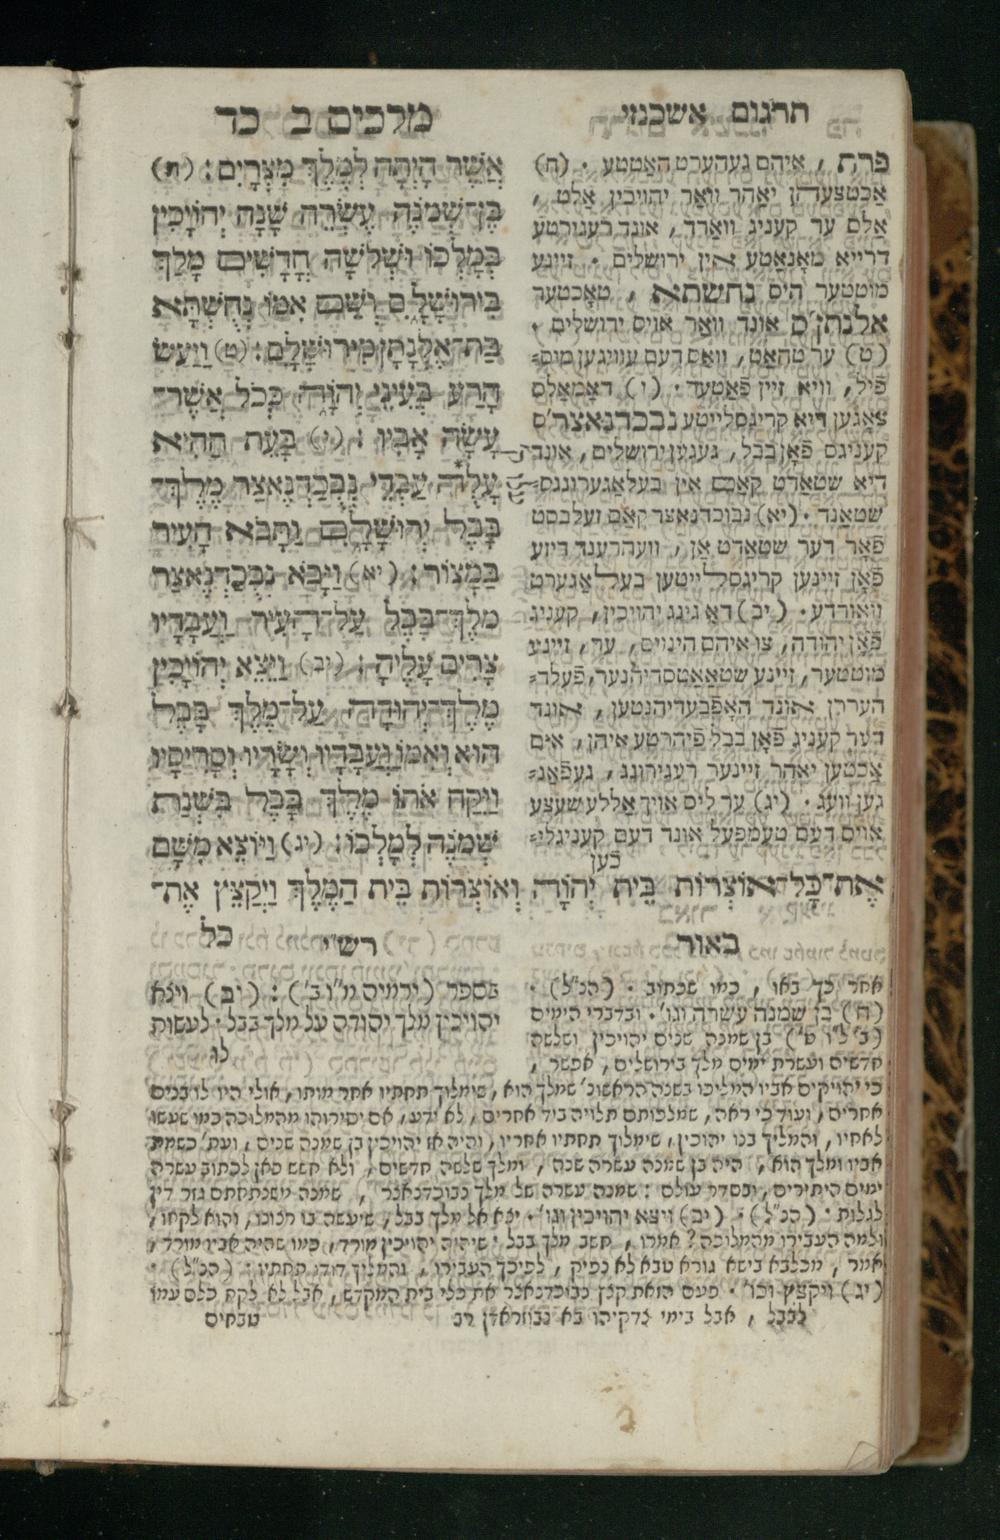 תרגום אשכנזי
מלכים ב כד
פרת , איהם געהערט האַטטע . (ח)
אַכטצעהן יאָהר וואַר יהויכין אַלט ,
אַלס ער קעניג וואַרד , אונד רעגירטע
דרייא מאָנאַטע אין ירושלים . זיינע
מוטטער היס נחשתא , טאָכטער
אלנתן'ס אונד וואַר אויס ירושלים .
(ט) ער טהאַט, וואַס דעם עוויגען מיס=
פֿיל, וויא זיין פֿאַטער. (י) דאַמאַלס
צאָגען דיא קריגסלייטע נבכדנאצר'ס
קעניגס פֿאָן בבל, געגען ירושלים, אונד
דיא שטאַדט קאַם אין בעלאַגערונגס=
שטאַנד . (יא) נבוכדנאצר קאַם זעלבסט
פֿאָר דער שטאַדט אַן , וועהרענד דיזע
פֿאָן זיינען קריגסלייטען בעלאַגערט
וואורדע. (יב) דאַ גינג יהויכין, קעניג
פֿאָן יהודה, צו איהם הינויס, ער, זיינע
מוטטער, זיינע שטאַאַטסדיהנער, פֿעלד=
העררן אונד האָפֿבעדיהנטען , אונד
דער קעניג פֿאָן בבל פֿיהרטע איהן, אים
אַכטען יאָהר זיינער רעגירונג, געפֿאַנ=
גען וועג . (יג) ער ליס אויך אַללע שעצע
אויס דעם טעמפעל אונד דעם קעניגלי=
כען
אֲשֶׁר הָיְתָה לְמֶלֶךְ מִצְרָיִם: (ח)
בֶּן־שְׁמֹנֶה עֶשְׂרֵה שָׁנָה יְהוֹיָכִין
בְּמָלְכוֹ וּשְׁלֹשָׁה חֳדָשִׁים מָלַךְ
בִּירוּשָׁלִָם וְשֵׁם אִמּוֹ נְחֻשְׁתָּא
בַת־אֶלְנָתָן מִירוּשָׁלִָם: (ט) וַיַּעַשׂ
הָרַע בְּעֵינֵי יְהוָֹה כְּכֹל אֲשֶׁר־
עָשָׂה אָבִיו : (י) בָּעֵת הַהִיא
עָלֻה עַבְדֵי נְבֻכַדְנֶאצַּר מֶלֶךְ־
בָּבֶל יְרוּשָׁלִָם וַתָּבֹא הָעִיר
בַּמָּצוֹר: (יא) וַיָּבֹא נְבֻכַדְנֶאצַּר
מֶלֶךְ־בָּבֶל עַל־הָעִיר וַעֲבָדָיו
צָרִים עָלֶיהָ: (יב) וַיֵּצֵא יְהוֹיָכִין
מֶלֶךְ־יְהוּדָה עַל־מֶלֶךְ בָּבֶל
הוּא וְאִמּוֹ וַעֲבָדָיו וְשָׂרָיו וְסָרִיסָיו
וַיִּקַּח אֹתוֹ מֶלֶךְ בָּבֶל בִּשְׁנַת
שְׁמֹנֶה לְמָלְכוֹ: (יג) וַיּוֹצֵא מִשָּׁם
אֶת־כָּל־אוֹצְרוֹת בֵּית יְהוָֹה וְאוֹצְרוֹת בֵּית הַמֶּלֶךְ וַיְקַצֵּץ אֶת־
כל
באור
רש"י
אחר כך באו , כמו שכתוב . (הנ"ל) .
(ח) בן שמנה עשרה וגו' . ובדברי הימים
(ב' ל"ו ט') בן שמנה שנים יהויכין ושלשה
חדשים ועשרת ימים מלך בירושלים, אפשר ,
בספר (ירמיה מ"ו ב') : (יב) ויצא
יהויכין מלך יהודה על מלך בבל . לעשות
לו
כי יהויקים אביו המליכו בשנה הראשונ' שמלך הוא, שימלוך תחתיו אחר מותו, אולי היו לו בנים
אחרים, ועוד כי ראה, שמלכותם תלויה ביד אחרים, לא ידע, אם יסירוהו מהמלוכה כמו שעשו
לאחיו, והמליך בנו יהויכין, שימלוך תחתיו אחריו, והיה אז יהויכין בן שמנה שנים, ועת' כשמת
אביו ומלך הוא, היה בן שמנה עשרה שנה , ומלך שלשה חדשים, ולא חשש כאן לכתוב עשרה
ימים היתירים, ובסדר עולם : שמנה עשרה של מלך נבוכדנאצר , שמנה משנתחתם גזר דין
לגלות . (הנ"ל) . (יב) ויצא יהויכין וגו' . יצא אל מלך בבל, שיעשה בו רצונו, והוא לקחו,
ולמה העבירו מהמלוכה? אמרו, חשב מלך בבל . שיהיה יהויכין מורד, כמו שהיה אביו מורד,
אמר , מכלבא בישא גורא טבא לא נפיק , לפיכך העבירו , והמליך דודו תחתיו : (הנ"ל) .
(יג) ויקצץ וכו' . פעם הזאת קצץ נבוכדנאצר את כלי בית המקדש, אבל לא לקח כלם עמו
לבבל , אבל בימי צדקיהו בא נבוזראדן רב
טבחים